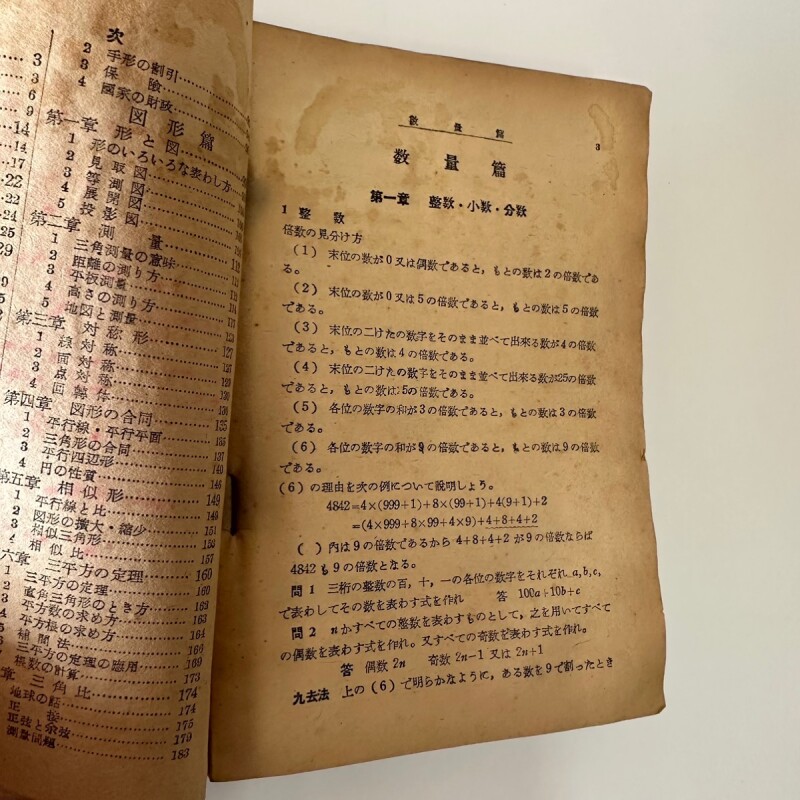 次
2 手形の割引
3 保険
4 國家の財政
図形篇
第一章 形と図
1 形のいろいろな表わし方
2 見取図
3 等測図
4 展開図
5 投影図
第二章 測量
1 三角測量の意味
2 距離の測り方
3 平板測量
4 高さの測り方
5 地図と測量
第三章 対称形 127
1 線対称 127
2 面対称 135
3 点対称
4 回轉体 130
第四章 図形の合同 135
1 平行線・平行平面 135
2 三角形の合同 137
3 平行四辺形 140
4 円の性質 146
第五章 相似形 149
1 平行線と比 149
2 図形の擴大・縮少 151
3 相似三角形 153
4 相似比 157
六章 三平方の定理 160
1 三平方の定理 160
2 直角三角形のとき方 162
3 平方数の求め方 163
4 平方根の求め方 164
5 補間法 166
三平方の定理の應用 169
根数の計算 173
章 三角比 174
地球の話 174
正接 175
正弦と余弦 179
測量問題 183
3
3
6
9
14
14
17
22
22
24
25
29
数量篇
3
数量篇
第一章 整数・小数・分数
1 整数
倍数の見分け方
(1) 末位の数が0又は偶数であると，もとの数は2の倍数であ
る。
(2) 末位の数が0又は5の倍数であると，もとの数は5の倍数
である。
(3) 末位の二けたの数字をそのまま並べて出來る数が4の倍数
であると，もとの数は4の倍数である。
(4) 末位の二けたの数字をそのまま並べて出來る数が25の倍数
であると，もとの数は5の倍数である。
(5) 各位の数字の和が3の倍数であると，もとの数は3の倍数
である。
(6) 各位の数字の和が9の倍数であると，もとの数は9の倍数
である。
(6)の理由を次の例について説明しよう。
4842=4×(999+1)+8×(99+1)+4(9+1)+2
=(4×999+8×99+4×9)+4+8+4+2
( )内は9の倍数であるから4+8+4+2が9の倍数ならば
4842も9の倍数となる。
問1 三桁の整数の百，十，一の各位の数字をそれぞれa,b,c,
で表わしてその数を表わす式を作れ 答 100a+10b+c
問2 nがすべての整数を表わすものとして，之を用いてすべて
の偶数を表わす式を作れ。又すべての奇数を表わす式を作れ。
答 偶数2n 奇数2n-1又は2n+1
九去法 上の(6)で明らかなように，ある数を9で割ったとき